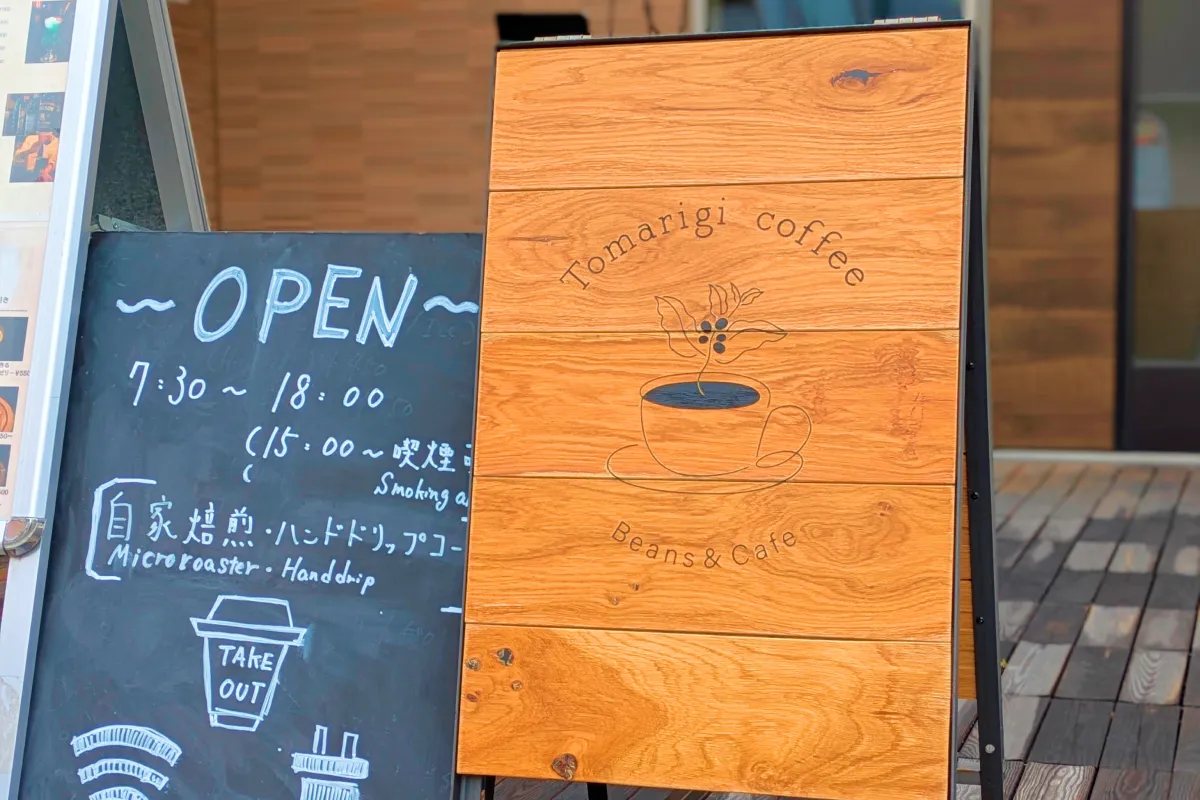 ~OPEN~
7:30~18:00
(15:00~喫煙
Smoking
自家焙煎・ハンドドリップコー
Microroaster・Handdrip
TAKE
OUT
Tomarigi coffee
Beans & Cafe